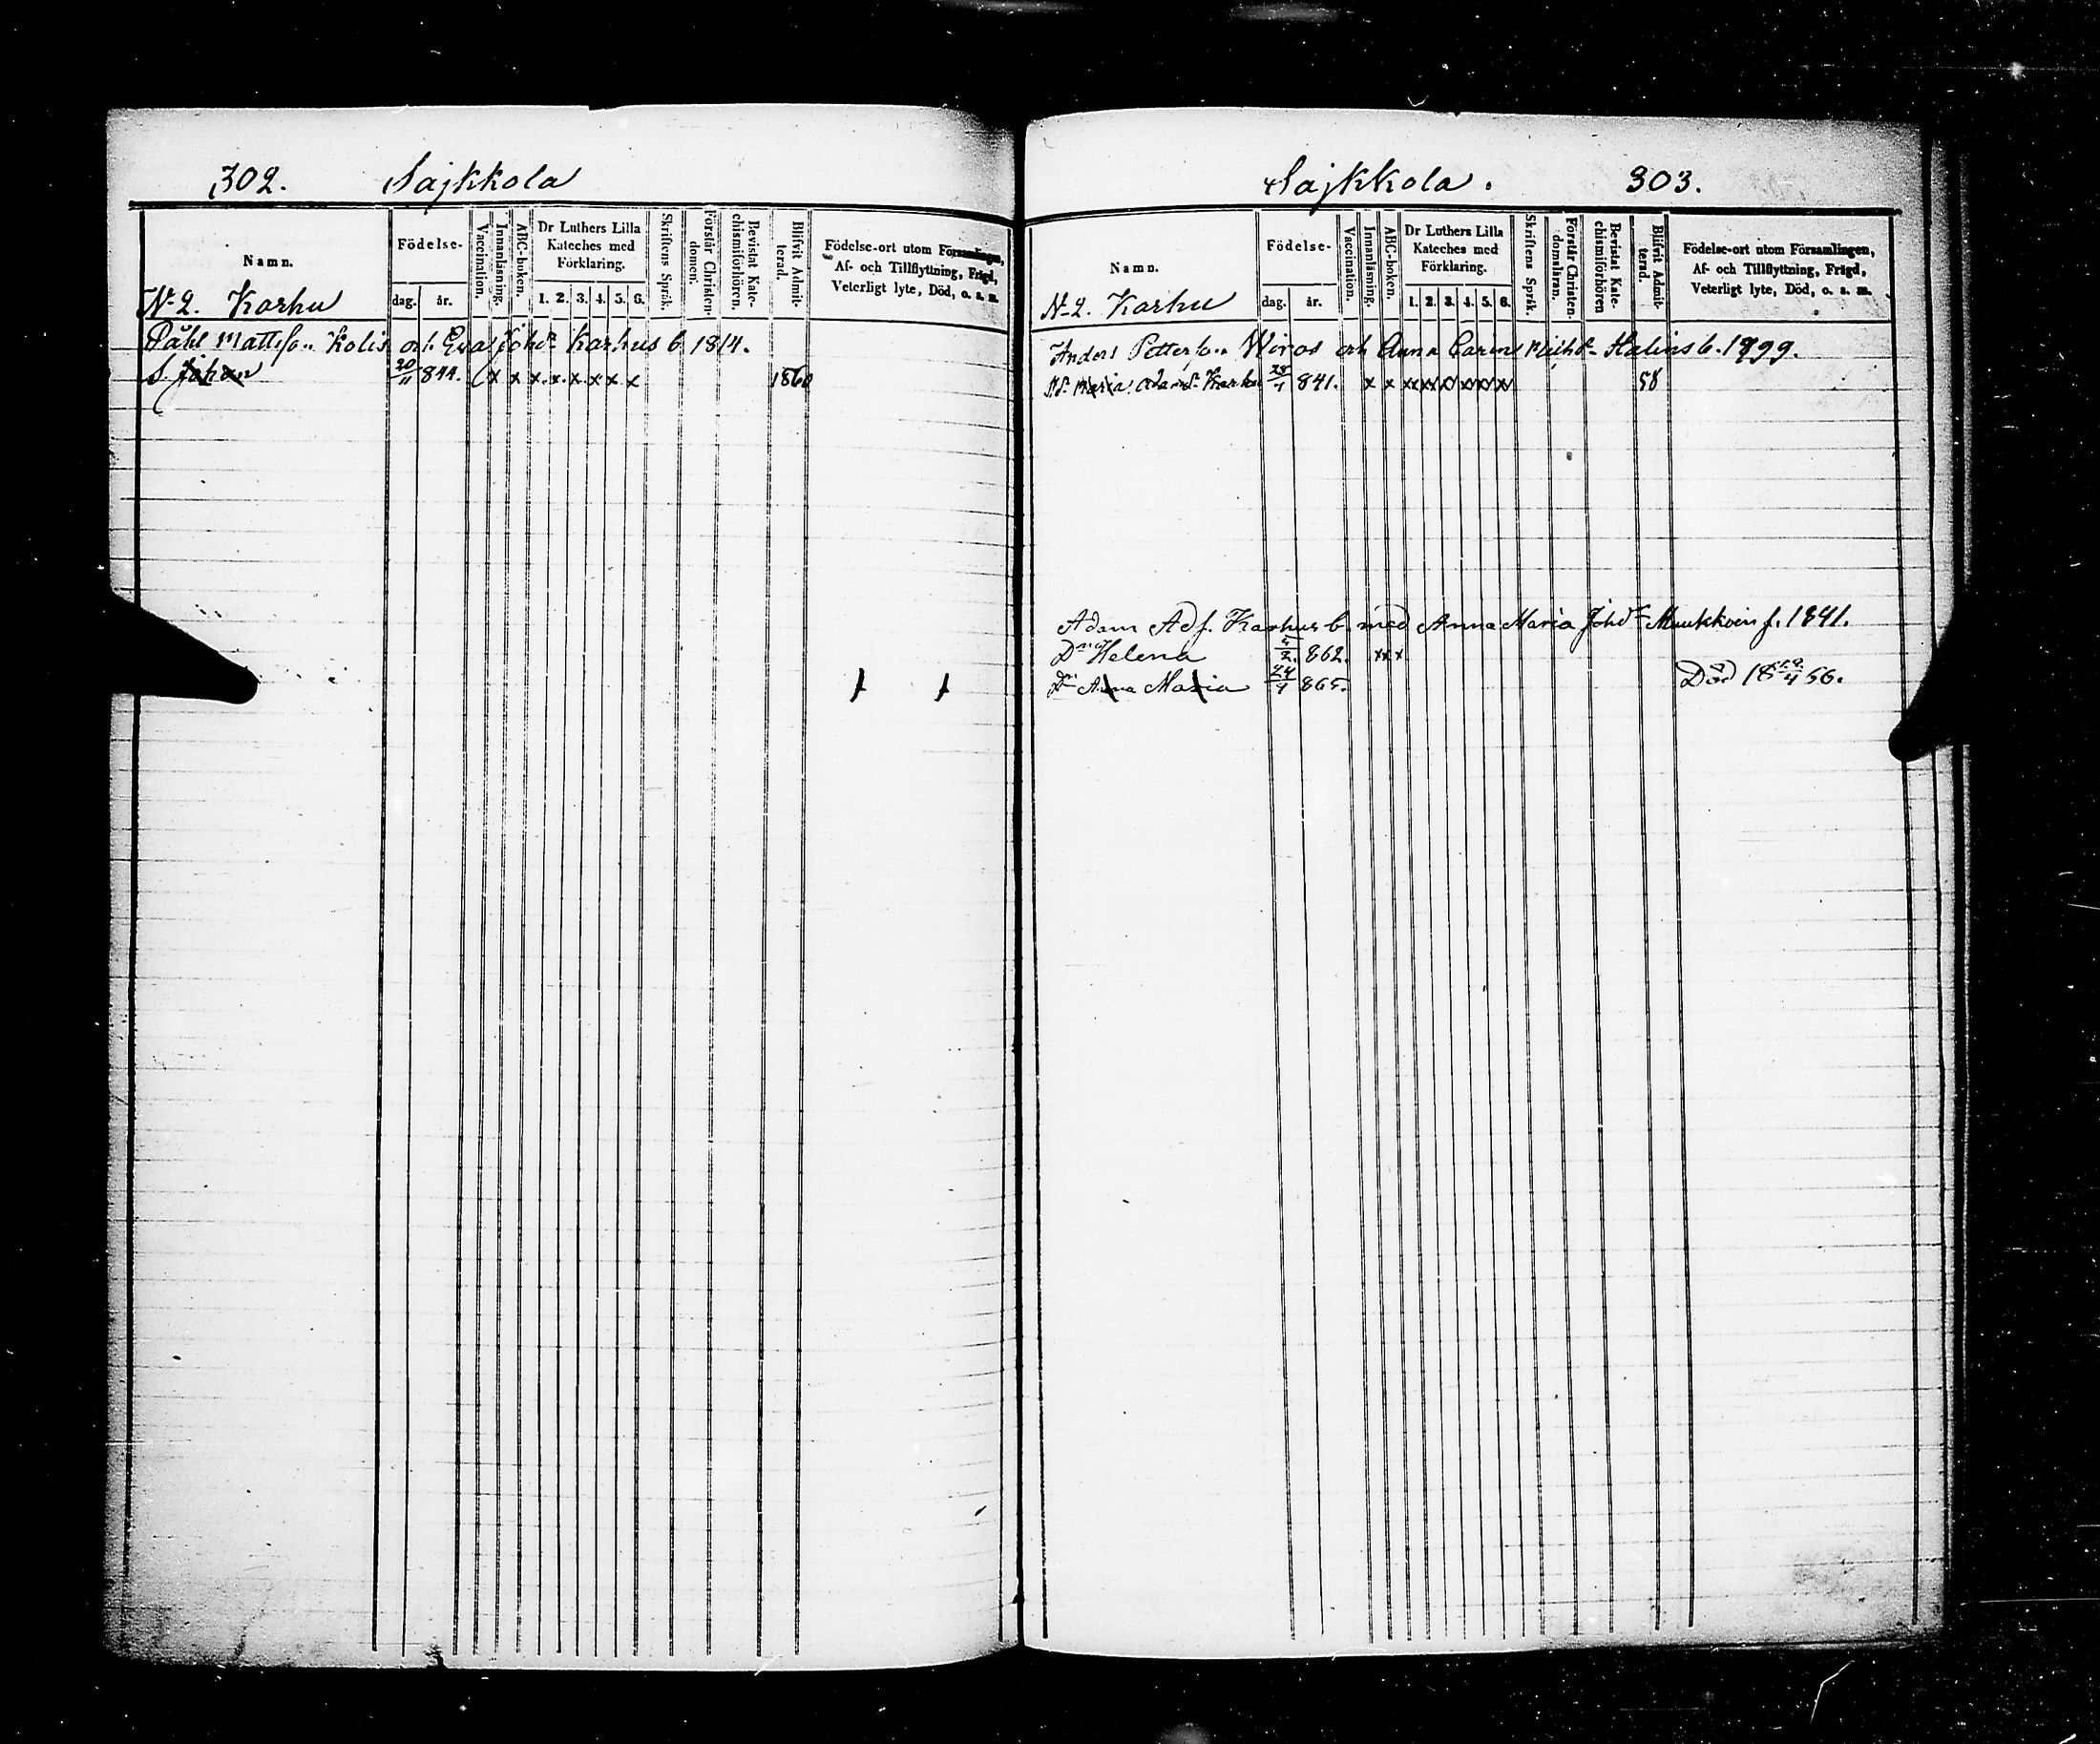 302. Sajkkola
Namn.
Födelse-
dag. år.
Vaccination.
Innanläsning.
ABC-boken.
Dr Luthers Lilla
Kateches med
Förklaring.
1. 2. 3. 4. 5. 6.
Skriftens Språk.
Förstår Christen-
domen.
Bevistat Kate-
chismiförhören.
Blifvit Admit-
terad.
Födelse-ort utom Församlingen,
Af- och Tillflyttning, Frägd,
Veterligt lyte, Död, o. s. m.
N-2. Karhu
Påhl Mattsso. Kolis och Eva Johdr Karhus b 1814.
S. Johan 20/11 844. x x x x x x x x 1860
Sajkkola. 303.
Namn.
Födelse-
dag. år.
Vaccination.
Innanläsning.
ABC-boken.
Dr Luthers Lilla
Kateches med
Förklaring.
1. 2. 3. 4. 5. 6.
Skriftens Språk.
Förstår Christen-
domsläran.
Bevistat Kate-
chismiförhören
Blifvit Admit-
terad.
Födelse-ort utom Församlingen,
Af- och Tillflyttning, Frägd,
Veterligt lyte, Död, o. s. m.
N-2. Karhu
Anders Petterso. Wiros och Anna Carin Halins b. 1799.
Maria Adamsdr Karhu 841. x x xx xx xx xx xx xx 58
Adam Adf. Karhus b. med Anna Maria Johdr Muukkoin f. 1841.
Dr Helena 862. x x x
Dr Anna Maria 24/1 865. Död 18 66.